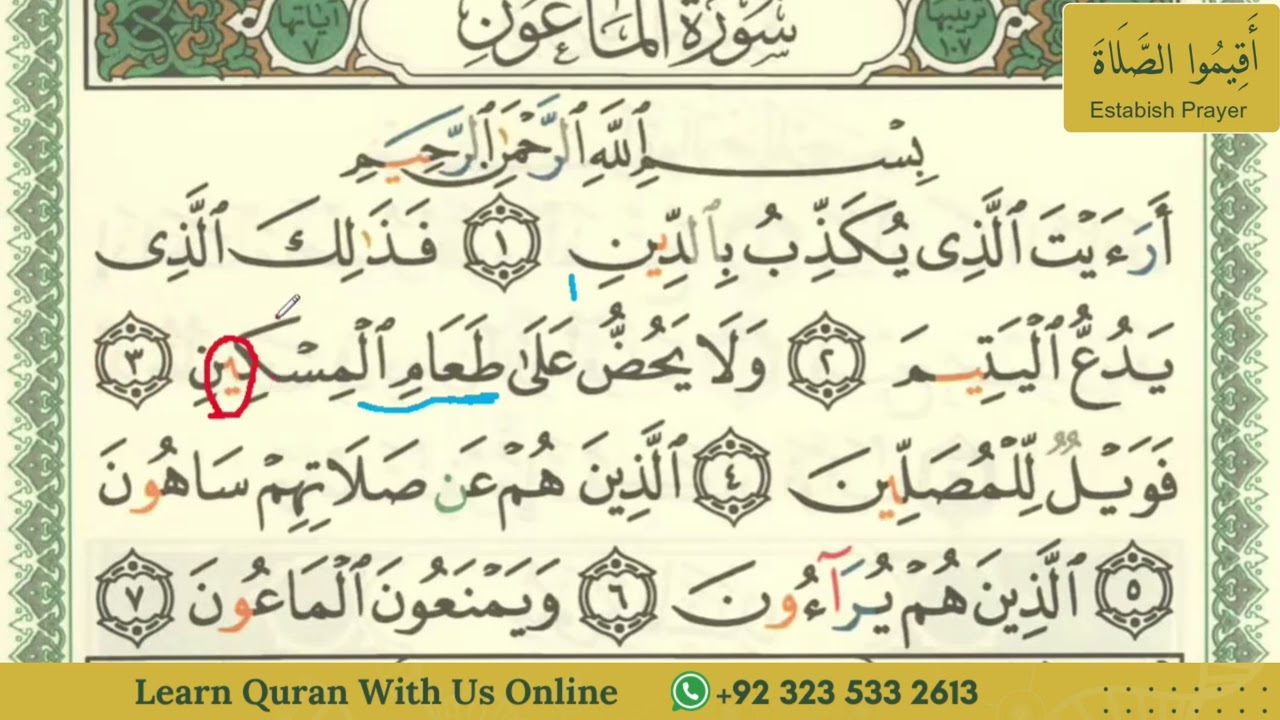 آياتها
٧
سُورَةُ الْمَاعُونِ
ترتيبها
١٠٧
أَقِيمُوا الصَّلَاةَ
Estabish Prayer
بِسْمِ ٱللَّهِ ٱلرَّحْمَٰنِ ٱلرَّحِيمِ
أَرَءَيْتَ ٱلَّذِى يُكَذِّبُ بِٱلدِّينِ ١ فَذَٰلِكَ ٱلَّذِى
يَدُعُّ ٱلْيَتِيمَ ٢ وَلَا يَحُضُّ عَلَىٰ طَعَامِ ٱلْمِسْكِينِ ٣
فَوَيْلٌ لِّلْمُصَلِّينَ ٤ ٱلَّذِينَ هُمْ عَن صَلَاتِهِمْ سَاهُونَ
٥ ٱلَّذِينَ هُمْ يُرَآءُونَ ٦ وَيَمْنَعُونَ ٱلْمَاعُونَ ٧
Learn Quran With Us Online +92 323 533 2613